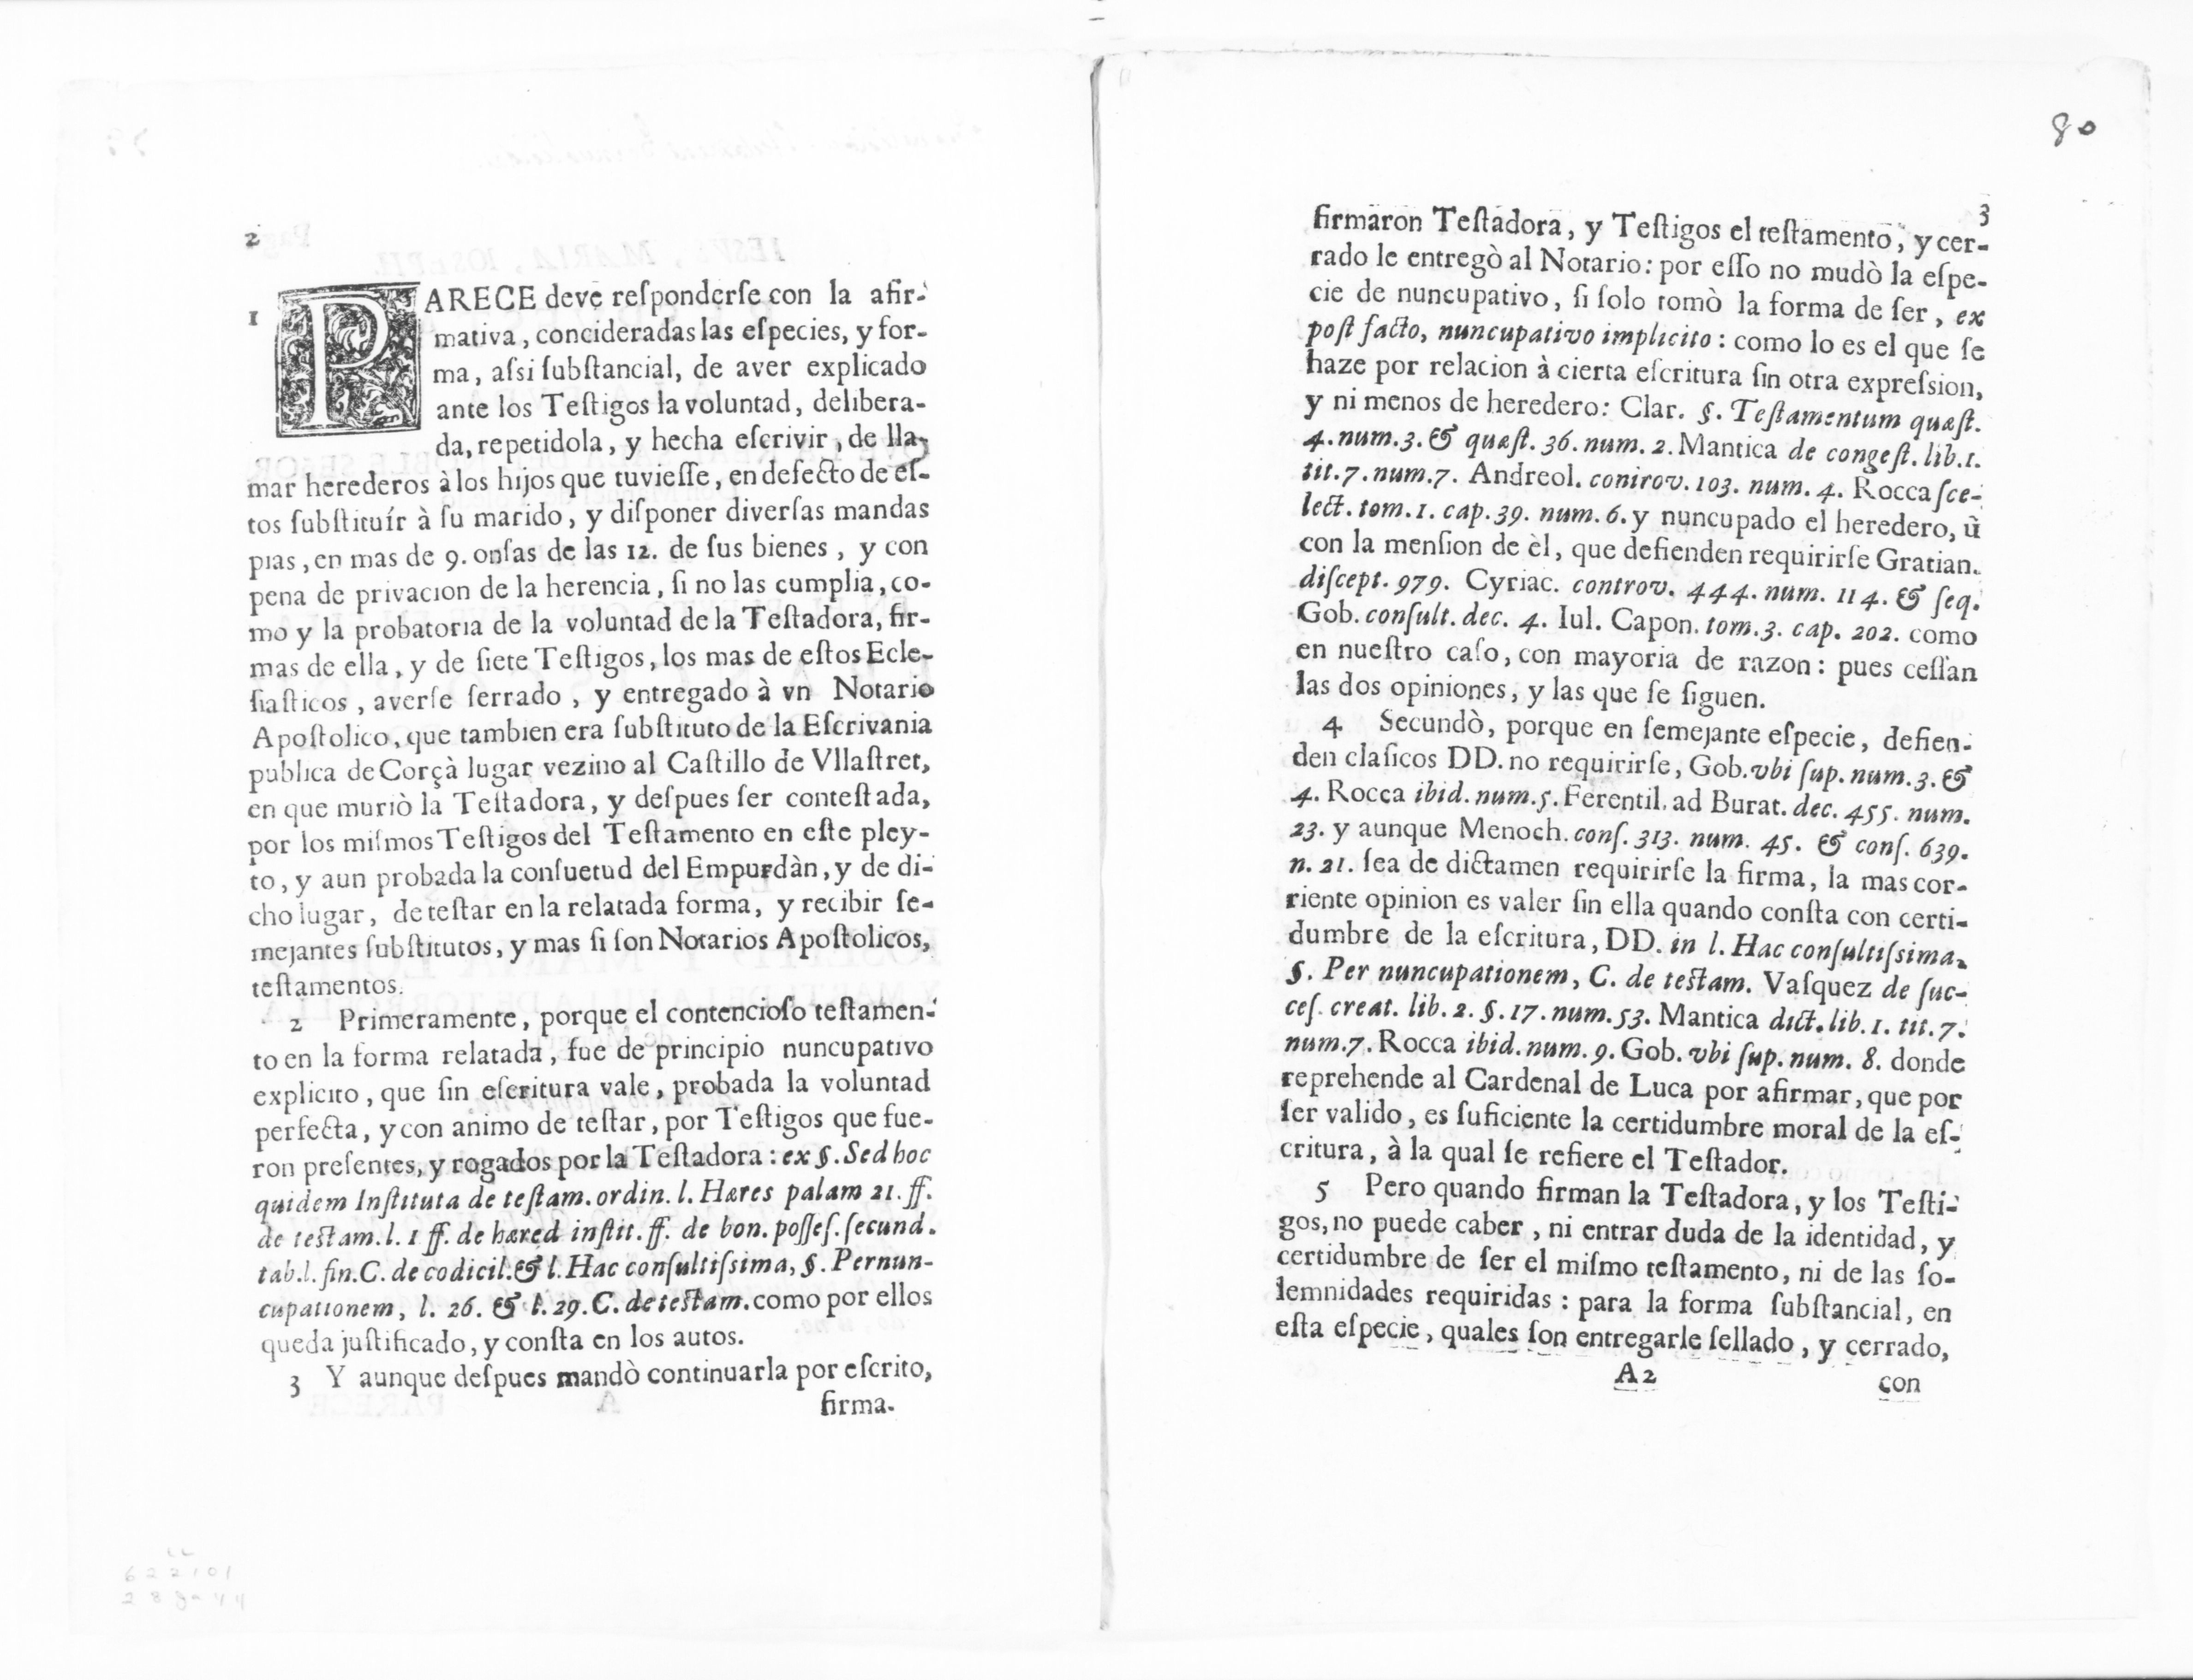 2
1 PARECE deve reſponderſe con la afir-
mativa, concideradas las eſpecies, y for-
ma, aſsi ſubſtancial, de aver explicado
ante los Teſtigos la voluntad, delibera-
da, repetidola, y hecha eſcrivir, de lla-
mar herederos à los hijos que tuvieſſe, en defecto de eſ-
tos ſubſtituír à ſu marido, y diſponer diverſas mandas
pias, en mas de 9. onſas de las 12. de ſus bienes, y con
pena de privacion de la herencia, ſi no las cumplia, co-
mo y la probatoria de la voluntad de la Teſtadora, fir-
mas de ella, y de ſiete Teſtigos, los mas de eſtos Ecle-
ſiaſticos, averſe ſerrado, y entregado à vn Notario
Apoſtolico, que tambien era ſubſtituto de la Eſcrivania
publica de Corçà lugar vezino al Caſtillo de Vllaſtret,
en que muriò la Teſtadora, y deſpues ſer conteſtada,
por los miſmos Teſtigos del Teſtamento en eſte pley-
to, y aun probada la conſuetud del Empurdàn, y de di-
cho lugar, de teſtar en la relatada forma, y recibir ſe-
mejantes ſubſtitutos, y mas ſi ſon Notarios Apoſtolicos,
teſtamentos.
2 Primeramente, porque el contencioſo teſtamen-
to en la forma relatada, fue de principio nuncupativo
explicito, que ſin eſcritura vale, probada la voluntad
perfecta, y con animo de teſtar, por Teſtigos que fue-
ron preſentes, y rogados por la Teſtadora: ex §. Sed hoc
quidem Inſtituta de teſtam. ordin. l. Hæres palam 21. ff.
de teſtam. l. 1 ff. de hæred inſtit. ff. de bon. poſſeſ. ſecund.
tab. l. fin. C. de codicil. & l. Hac conſultiſsima, §. Per nun-
cupationem, l. 26. & l. 29. C. de teſtam. como por ellos
queda juſtificado, y conſta en los autos.
3 Y aunque deſpues mandò continuarla por eſcrito,
firma-
80
3
firmaron Teſtadora, y Teſtigos el teſtamento, y cer-
rado le entregò al Notario: por eſſo no mudò la eſpe-
cie de nuncupativo, ſi ſolo tomò la forma de ſer, ex
poſt facto, nuncupativo implicito: como lo es el que ſe
haze por relacion à cierta eſcritura ſin otra expreſsion,
y ni menos de heredero: Clar. §. Teſtamentum quæſt.
4. num. 3. & quæſt. 36. num. 2. Mantica de congeſt. lib. 1.
tit. 7. num. 7. Andreol. controv. 103. num. 4. Rocca ſce-
lect. tom. 1. cap. 39. num. 6. y nuncupado el heredero, ù
con la menſion de èl, que defienden requirirſe Gratian.
diſcept. 979. Cyriac. controv. 444. num. 114. & ſeq.
Gob. conſult. dec. 4. Iul. Capon. tom. 3. cap. 202. como
en nueſtro caſo, con mayoria de razon: pues ceſſan
las dos opiniones, y las que ſe ſiguen.
4 Secundò, porque en ſemejante eſpecie, defien-
den claſicos DD. no requirirſe, Gob. vbi ſup. num. 3. &
4. Rocca ibid. num. 5. Ferentil. ad Burat. dec. 455. num.
23. y aunque Menoch. conſ. 313. num. 45. & conſ. 639.
n. 21. ſea de dictamen requirirſe la firma, la mas cor-
riente opinion es valer ſin ella quando conſta con certi-
dumbre de la eſcritura, DD. in l. Hac conſultiſsima,
§. Per nuncupationem, C. de teſtam. Vaſquez de ſuc-
ceſ. creat. lib. 2. §. 17. num. 53. Mantica dict. lib. 1. tit. 7.
num. 7. Rocca ibid. num. 9. Gob. vbi ſup. num. 8. donde
reprehende al Cardenal de Luca por afirmar, que por
ſer valido, es ſuficiente la certidumbre moral de la eſ-
critura, à la qual ſe refiere el Teſtador.
5 Pero quando firman la Teſtadora, y los Teſti-
gos, no puede caber, ni entrar duda de la identidad, y
certidumbre de ſer el miſmo teſtamento, ni de las ſo-
lemnidades requiridas: para la forma ſubſtancial, en
eſta eſpecie, quales ſon entregarle ſellado, y cerrado,
A2
con